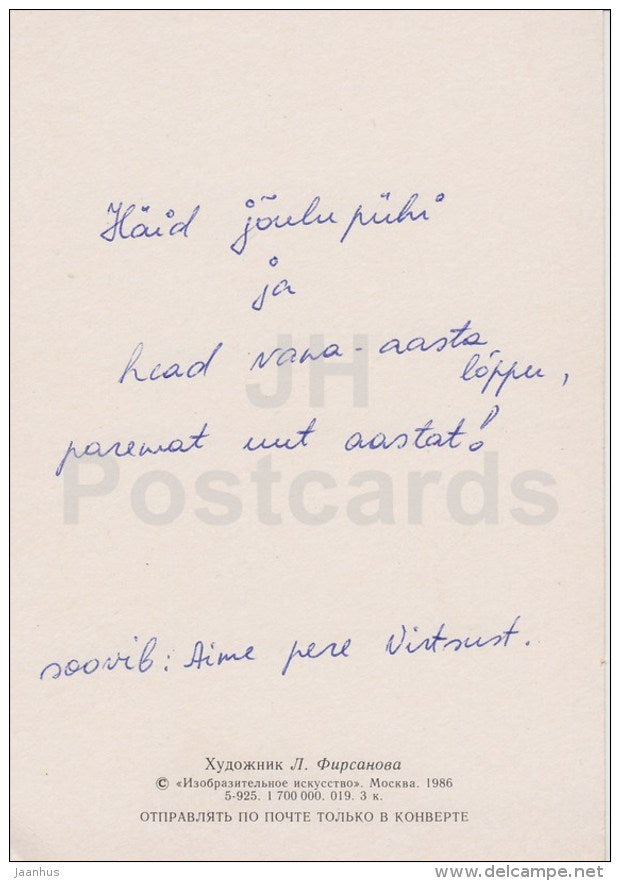 Häid jõulupühi
ja
head vana-aasta
lõppu,
paremat uut aastat!
JH
Postcards
soovib: Aime pere Virtsust.
Художник Л. Фирсанова
© «Изобразительное искусство». Москва. 1986
5-925. 1 700 000. 019. 3 к.
ОТПРАВЛЯТЬ ПО ПОЧТЕ ТОЛЬКО В КОНВЕРТЕ
jaanhus
www.delcampe.net